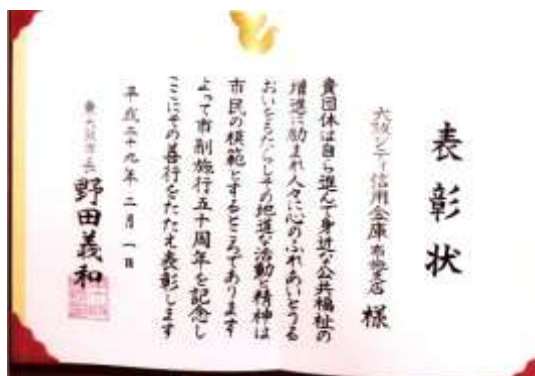 表彰状
大阪シティ信用金庫布施支店 様
貴団体は自ら進んで身近な公共福祉の
増進に励まれ人々に心のふれあいとうる
おいをもたらしその地道な活動と精神は
市民の模範とするところであります
よって市制施行五十周年を記念し
ここにその善行をたたえ表彰します
平成二十九年二月一日
東大阪市長 野田義和